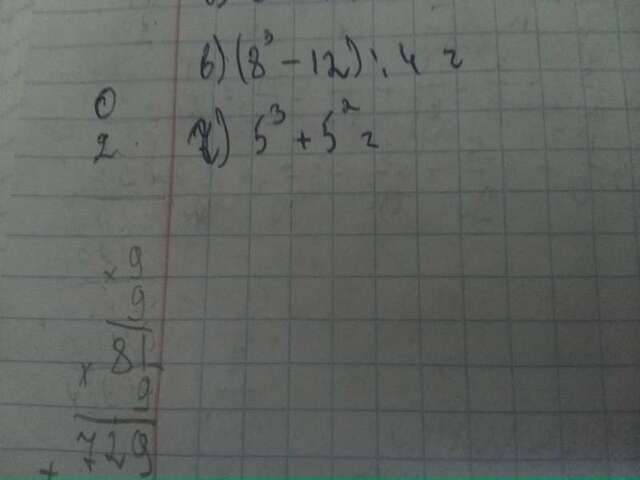 в) (8³ - 12) : 4 =
г) 5³ + 5² =
0
2
× 9
9
× 81
9
+ 729